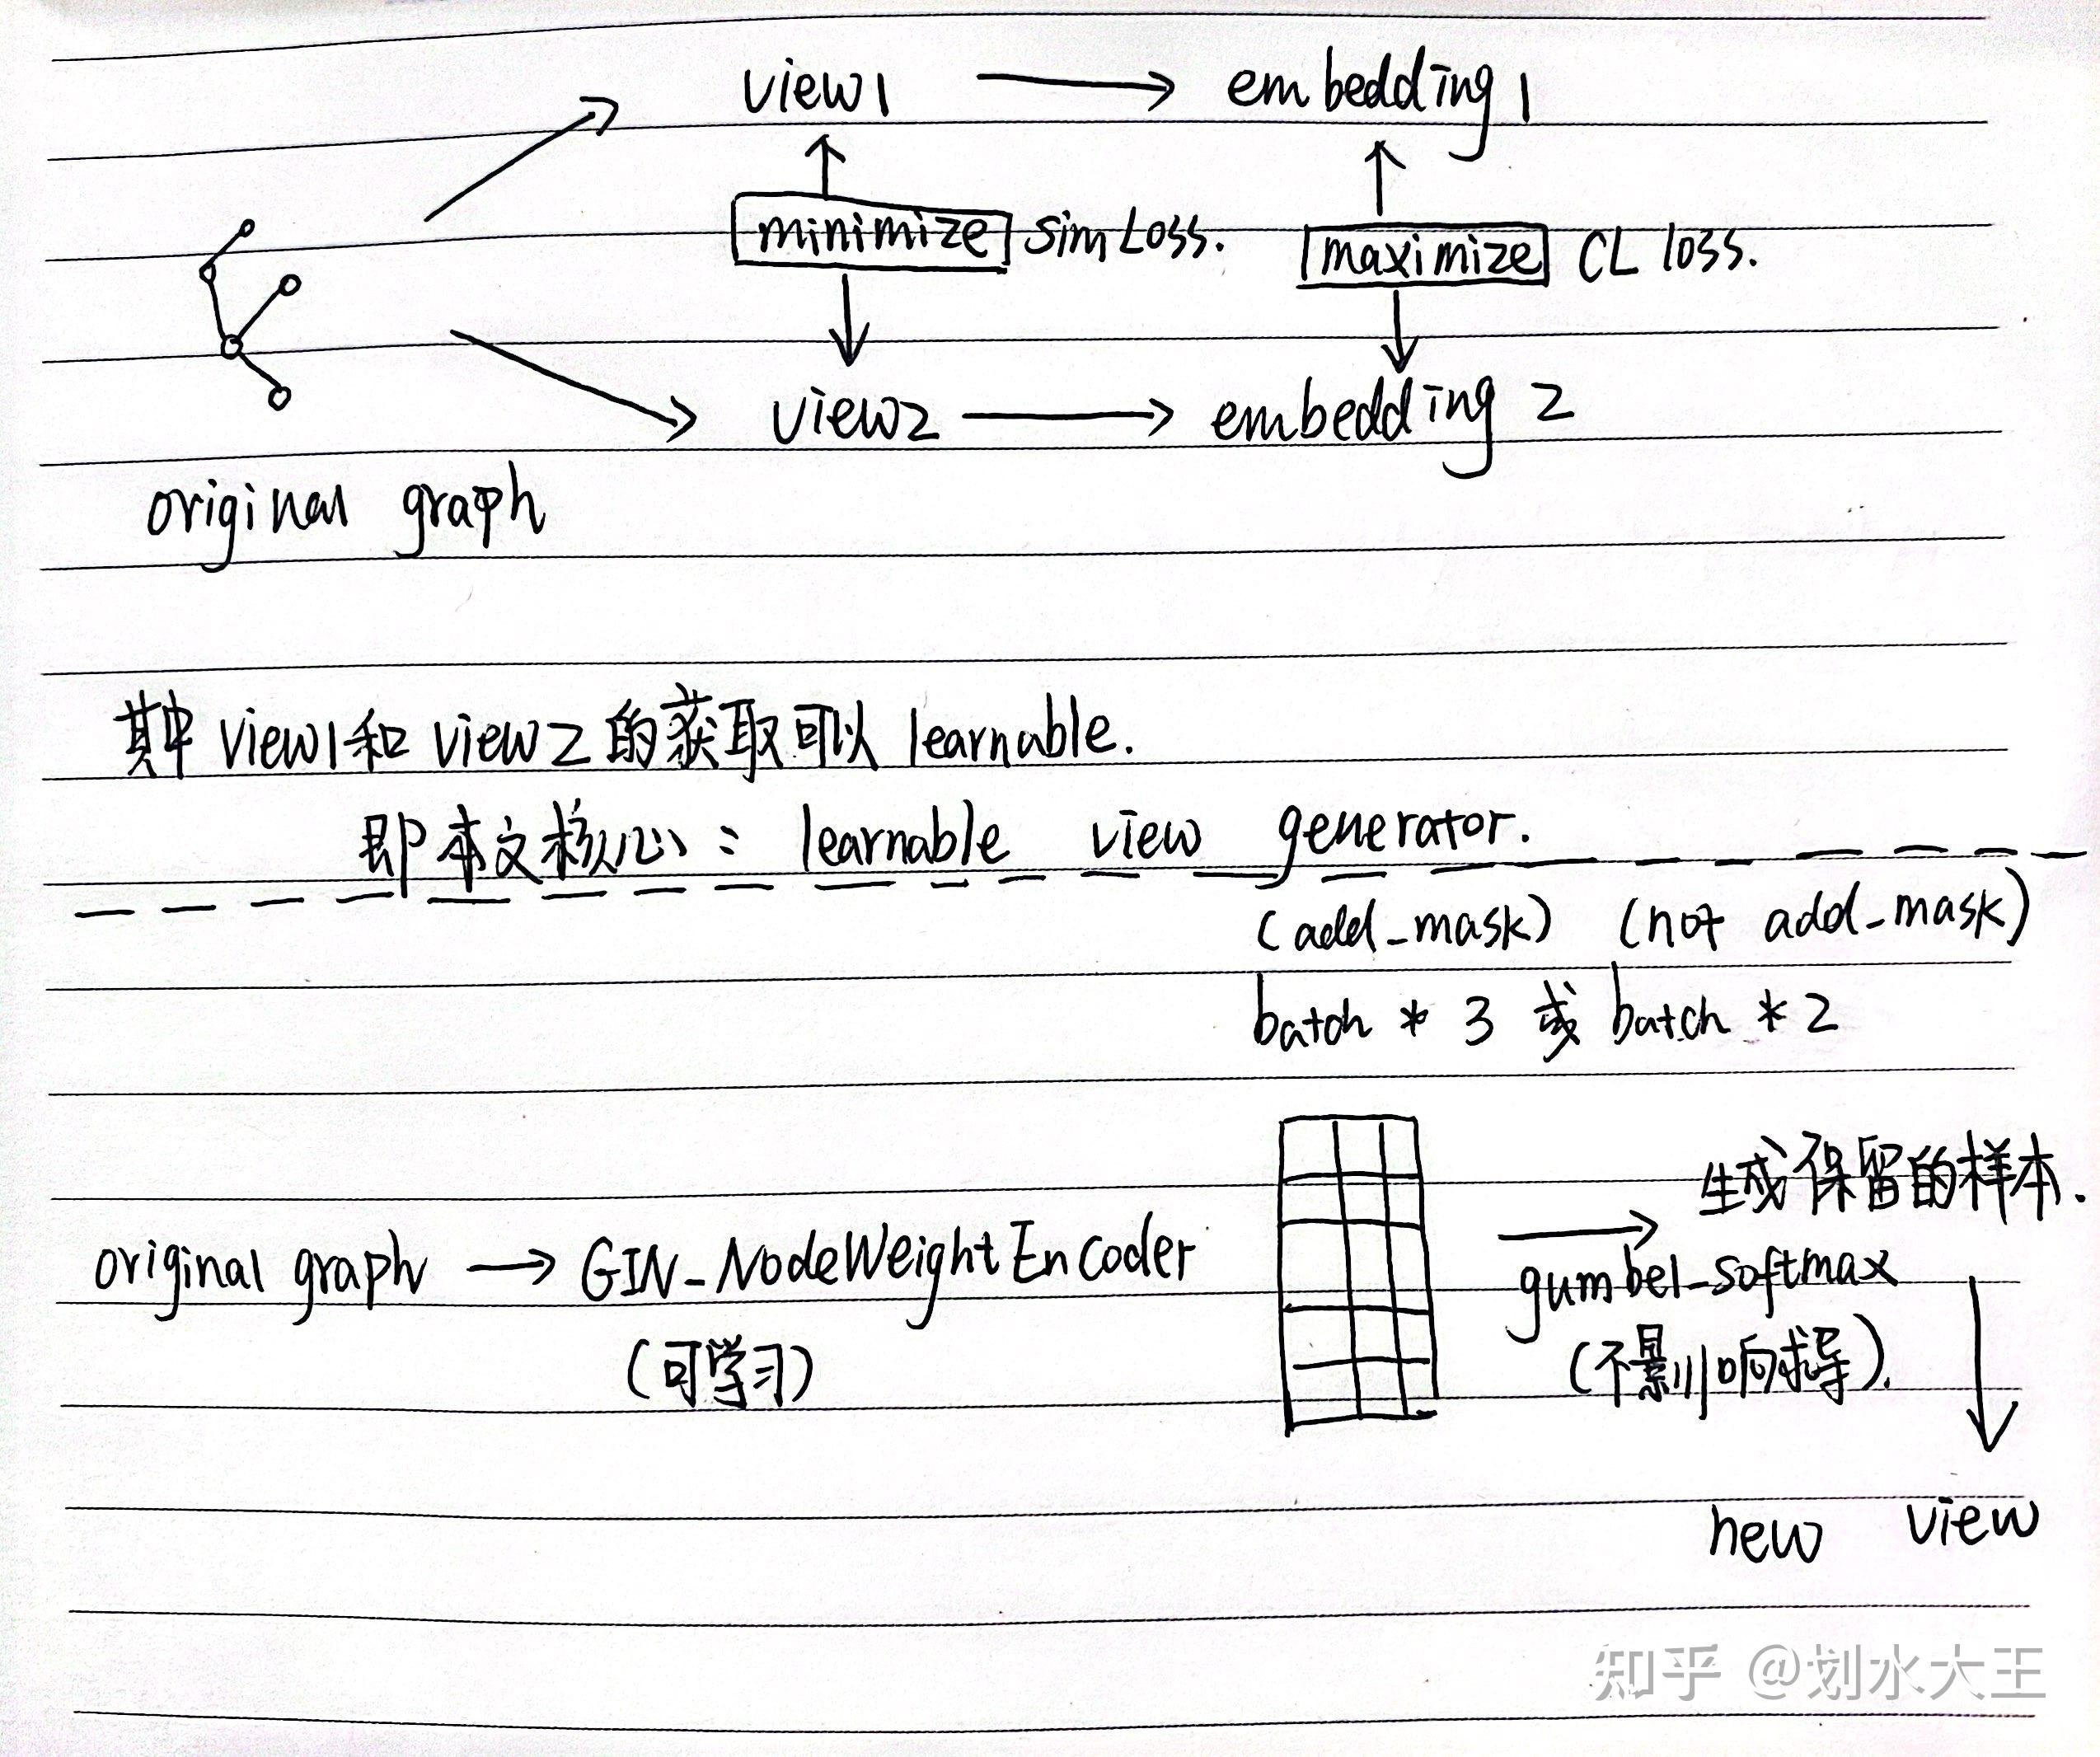 view1 → embedding1
minimize simLoss. maximize CL loss.
view2 → embedding 2
original graph
其中 view1和 view2 的获取可以 learnable.
即本文核心: learnable view generator.
(add_mask) (not add_mask)
batch * 3 或 batch * 2
生成保留的样本.
original graph → GIN_NodeWeightEncoder → gumbel_softmax
(可学习) (不影响求导).
new view
知乎 @划水大王